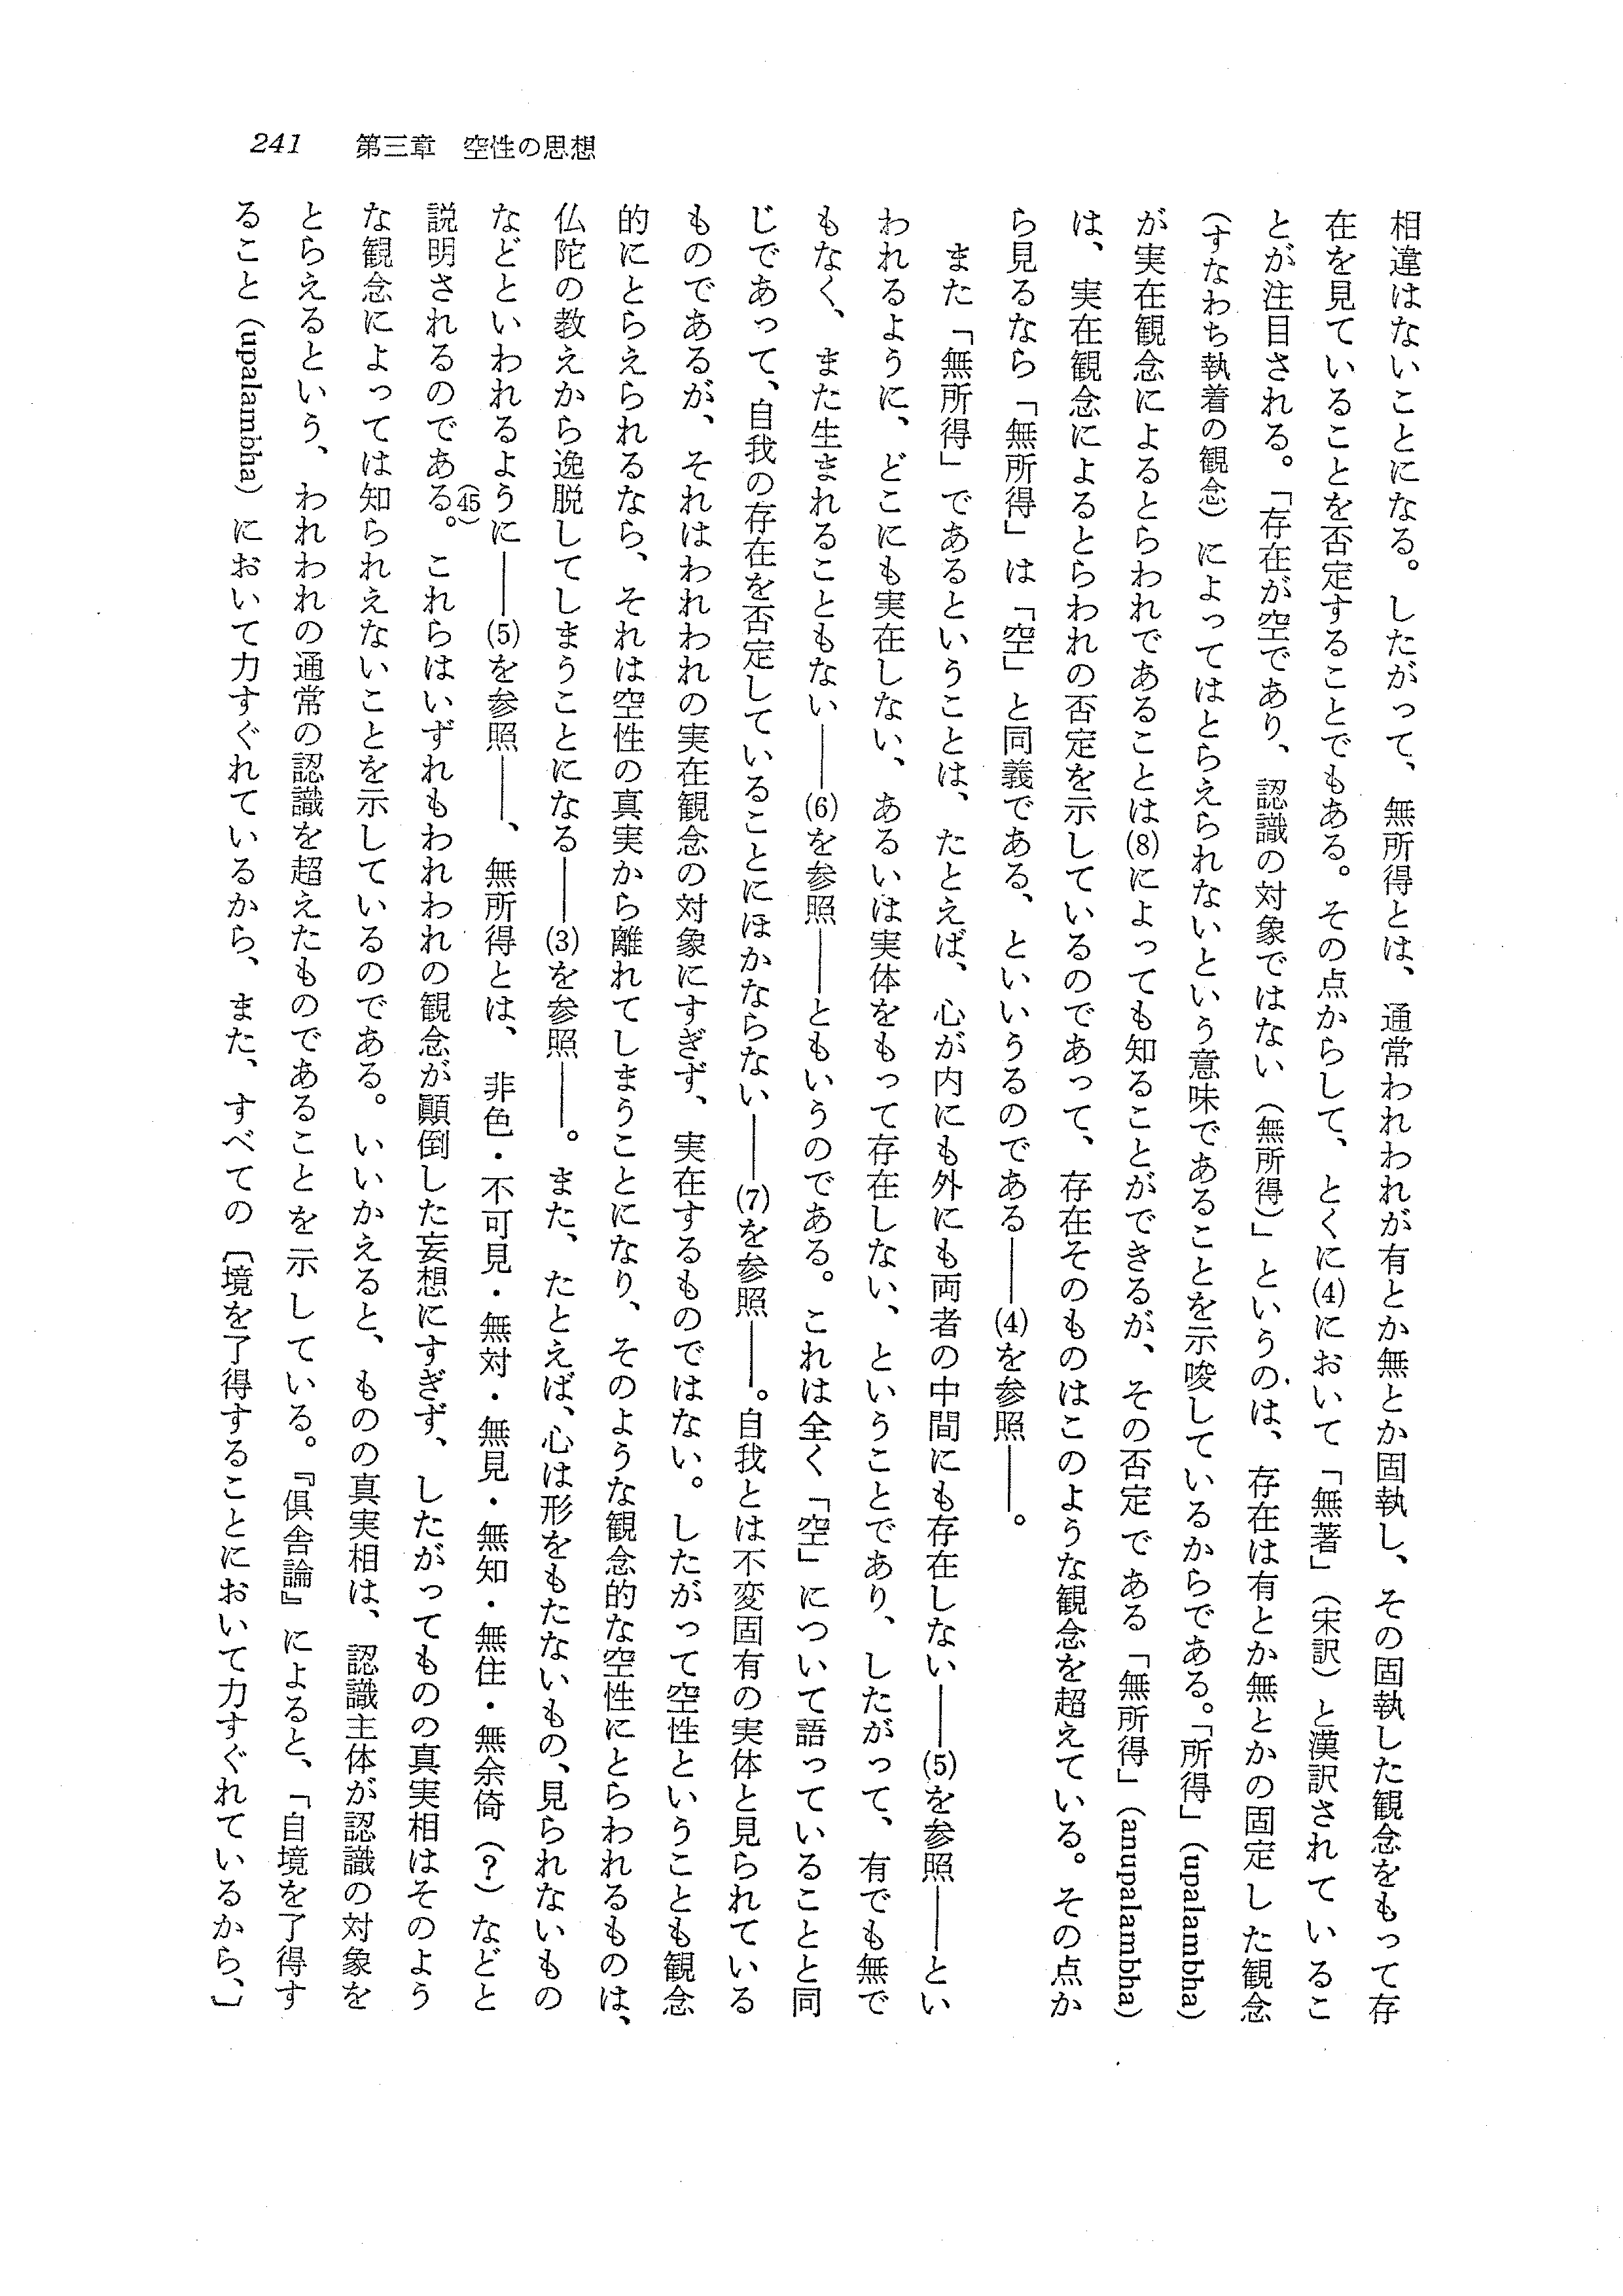 241　第三章　空性の思想
相違はないことになる。したがって、無所得とは、通常われわれが有とか無とか固執し、その固執した観念をもって存
在を見ていることを否定することでもある。その点からして、とくに(4)において「無著」（宋訳）と漢訳されているこ
とが注目される。「存在が空であり、認識の対象ではない（無所得）」というのは、存在は有とか無とかの固定した観念
（すなわち執着の観念）によってはとらえられないという意味であることを示唆しているからである。「所得」（upalambha）
が実在観念によるとらわれであることは(8)によっても知ることができるが、その否定である「無所得」（anupalambha）
は、実在観念によるとらわれの否定を示しているのであって、存在そのものはこのような観念を超えている。その点か
ら見るなら「無所得」は「空」と同義である、といいうるのである――(4)を参照――。
　また「無所得」であるということは、たとえば、心が内にも外にも両者の中間にも存在しない――(5)を参照――とい
われるように、どこにも実在しない、あるいは実体をもって存在しない、ということであり、したがって、有でも無で
もなく、また生まれることもない――(6)を参照――ともいうのである。これは全く「空」について語っていることと同
じであって、自我の存在を否定していることにほかならない――(7)を参照――。自我とは不変固有の実体と見られている
ものであるが、それはわれわれの実在観念の対象にすぎず、実在するものではない。したがって空性ということも観念
的にとらえられるなら、それは空性の真実から離れてしまうことになり、そのような観念的な空性にとらわれるものは、
仏陀の教えから逸脱してしまうことになる――(3)を参照――。また、たとえば、心は形をもたないもの、見られないもの
などといわれるように――(5)を参照――、無所得とは、非色・不可見・無対・無見・無知・無住・無余倚（？）などと
説明されるのである。(45)これらはいずれもわれわれの観念が顚倒した妄想にすぎず、したがってものの真実相はそのよう
な観念によっては知られえないことを示しているのである。いいかえると、ものの真実相は、認識主体が認識の対象を
とらえるという、われわれの通常の認識を超えたものであることを示している。『倶舎論』によると、「自境を了得す
ること（upalambha）において力すぐれているから、また、すべての〔境を了得することにおいて力すぐれているから、〕